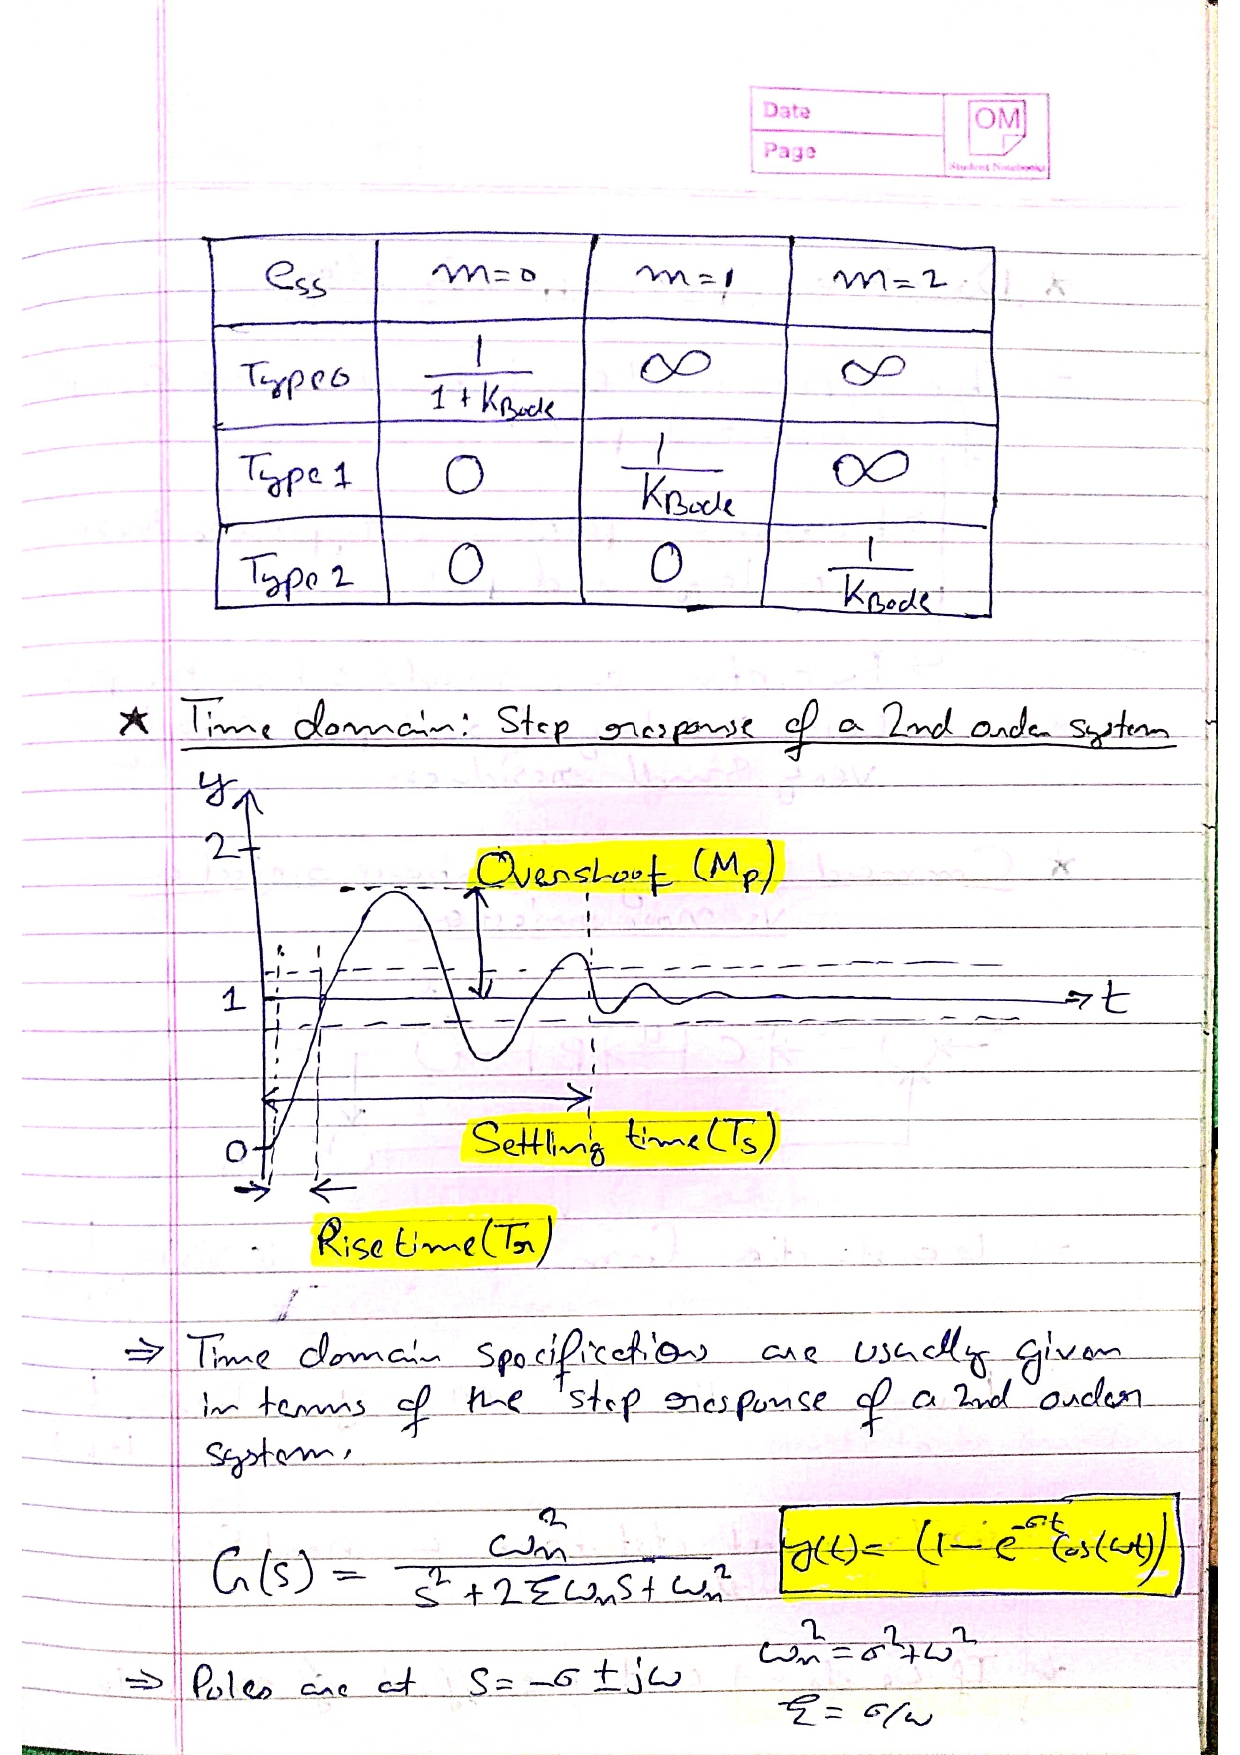 Date
Page
OM
Student Notebooks
ess m=0 m=1 m=2
Type 0 1/(1+KBode) ∞ ∞
Type 1 0 1/KBode ∞
Type 2 0 0 1/KBode
★ Time domain: Step response of a 2nd order system
y
2
Overshoot (Mp)
1
t
Settling time (Ts)
0
Rise time (Tr)
⇒ Time domain specifications are usually given
in terms of the step response of a 2nd order
system.
G(s) = ωn²/(s²+2ξωns+ωn²) y(t)= (1-e^-σt cos(ωt))
ωn²=σ²+ω²
⇒ Poles are at s=-σ±jω
ξ=σ/ω